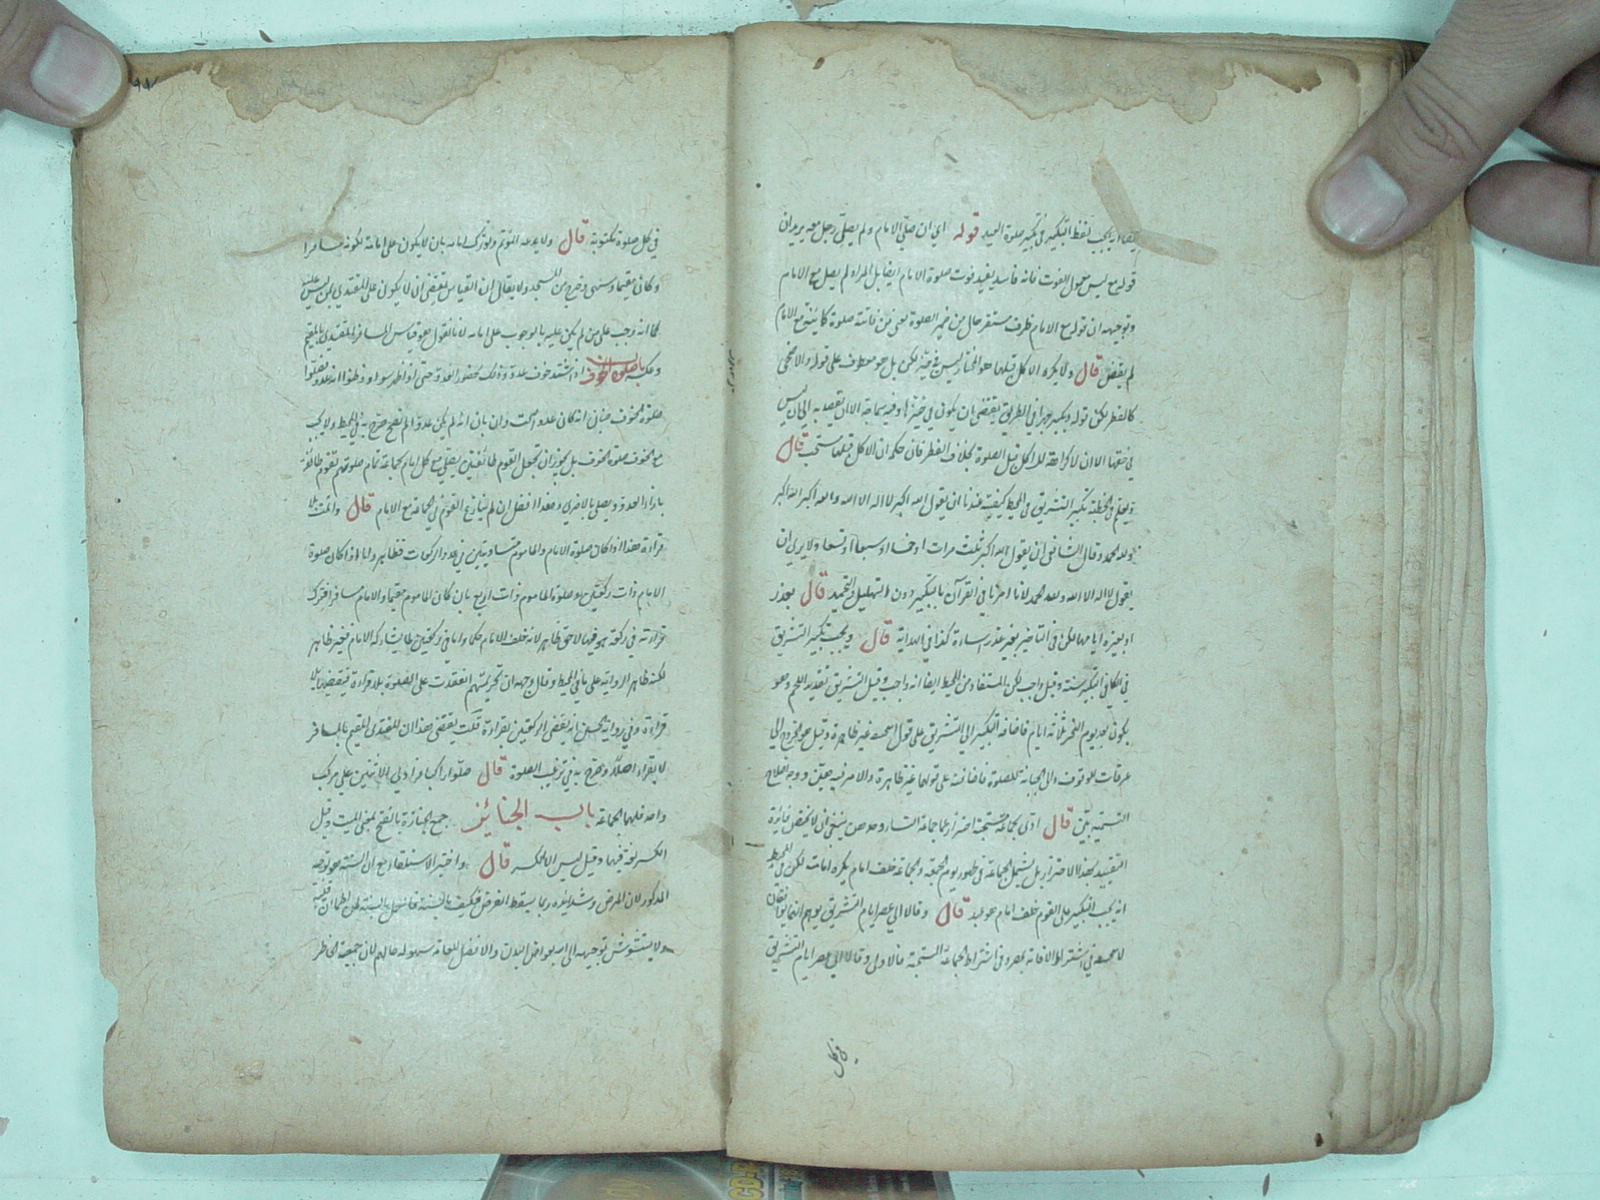 يجب لفظ التكبير في تكبير صلوة العيد قوله اي ان صلى الامام ولم يصلي رجل معه يريد ان
قوله مع ليس معمول الفوت فانه فاسد يفيد فوت صلوة الامام ايضا بل المراد لم يصل مع الامام
وتوجيهه ان قوله مع الامام ظرف مستقر حال من ضمير الصلوة يعني من فاتته صلوة كائنة مع الامام
لم يقض قال ولا يكره الاكل قبلها هو المختار ليس في حيز لكن بل هو معطوف على قوله والاضحى
كالفطر لكن قوله ويكبر جهرا في الطريق يقتضي ان يكون في حيزها وفيه سماجة الا ان يقصد به
في حقها الا ان لا كراهة للاكل قبل الصلوة بخلاف الفطر فان حكمه ان الاكل قبلها مستحب قال
ويعلم في الخطبة تكبير التشريق في المحيط كيفيته عندنا ان يقول الله اكبر لا اله الا الله والله اكبر الله اكبر
ولله الحمد وقال الشافعي ان يقول الله اكبر ثلث مرات او خمسا او سبعا او تسعا ولا يرى ان
يقول لا اله الا الله ولله الحمد لانا امرنا في القرآن بالتكبير دون التهليل والتحميد قال بعذر
او بغيره ايامها لكن في التاخير بغير عذر اساءة كذا في الهداية قال ويجب تكبير التشريق
في الكافي التكبير سنة وقيل واجب لكن المستفاد من المحيط ايضا انه واجب وقيل التشريق تقديد اللحم وهو
يكون بعد يوم النحر ثلثة ايام فاضافة التكبير الى التشريق على قول ابيحنيفة غير ظاهرة وقيل هو الخروج الى
عرفات للوقوف والى الجبانة للصلوة فاضافته على قولهما غير ظاهرة والامر فيه هين ووجه اصلاح
التسمية بين قال ادى بجماعة مستحبة احتراز عما جماعة النساء وحدهن ينبغي ان لا يخفى فائدة
التقييد بهذا الاحتراز بل يشمل الجماعة في ظهر يوم الجمعة والجماعة خلف امام يكره امامته لكن في المحيط
انه يجب التكبير على القوم خلف امام هو عبد قال وقالا الى عصر ايام التشريق يوهم انهما يوافقان
لابيحنيفة في اشتراط الاقامة بمصر وفي اشتراط الجماعة المستحبة فالاولى وقالا الى عصر ايام التشريق
في كل
في كل صلوة مكتوبة قال ولا يدعه المؤتم ولو تركه امامه بان لا يكون على امامه لكونه مسافرا
وكان مقيما وسهى وخرج من المسجد ولا يقال ان القياس يقتضي ان لا يكون على المقتدي لمن ليس عليه
كما انه وجب على من لم يكن عليه بالوجوب على امامه لانا نقول هو قياس المسافر المقتدي بالمقيم
وعكسه باب صلوة الخوف اذا اشتد خوف عدو وذلك بحضور العدو حتى اذا ظهر سواد وظنوا انه عدو فصلوا
صلوة الخوف فبان انه كان عدوا صحت وان بان انه لم يكن عدوا لم تصح صرح به في المحيط ولا يجب
مع الخوف صلوة الخوف بل يجوز ان يجعل القوم طائفتين يصلي مع كل امام بجماعة تمام صلوتهم تقوم طائفة
بازاء العدو ويصلي بالاخرى وهذا افضل ان لم يتنازع القوم في الجماعة مع الامام قال واتمت بلا
قراءة هذا اذا كان صلوة الامام والماموم متساويتين في عدد الركعات فظاهر واما اذا كان صلوة
الامام ذات ركعتين وصلوة الماموم ذات اربع بان كان الماموم مقيما والامام مسافرا فترك
قراءته في ركعة هو فيها لاحق ظاهر لانه خلف الامام حكما واما في ركعتين لا يشاركه الامام فغير ظاهر
لكنه ظاهر الرواية على ما في المحيط وقال وجهه ان تحريمتهم انعقدت على الصلوة بلا قراءة فيقضيها بلا
قراءة وفي رواية الحسن انه يقضي الركعتين بقراءة قلت يقتضي هذا ان المقتدي المقيم بالمسافر
لا يقراء اصلا وصرح به في ترغيب الصلوة قال صلوا ركبانا فرادى الا اثنين على مركب
واحد فلهما الجماعة باب الجنائز جمع الجنازة بالفتح بمعنى الميت وقيل
الكسر لغة فيها وقيل ليس الا الكسر قال واختير الاستلقاء مع ان السنة هو توجه
المذكور لان المرض وشدايده ربما يسقط الفرض فكيف بالسنة
ولا يتشوش توجيهه الى الله بعوائق البدن والافضل للعامة سهولة حالهم لان جمعية الخاطر